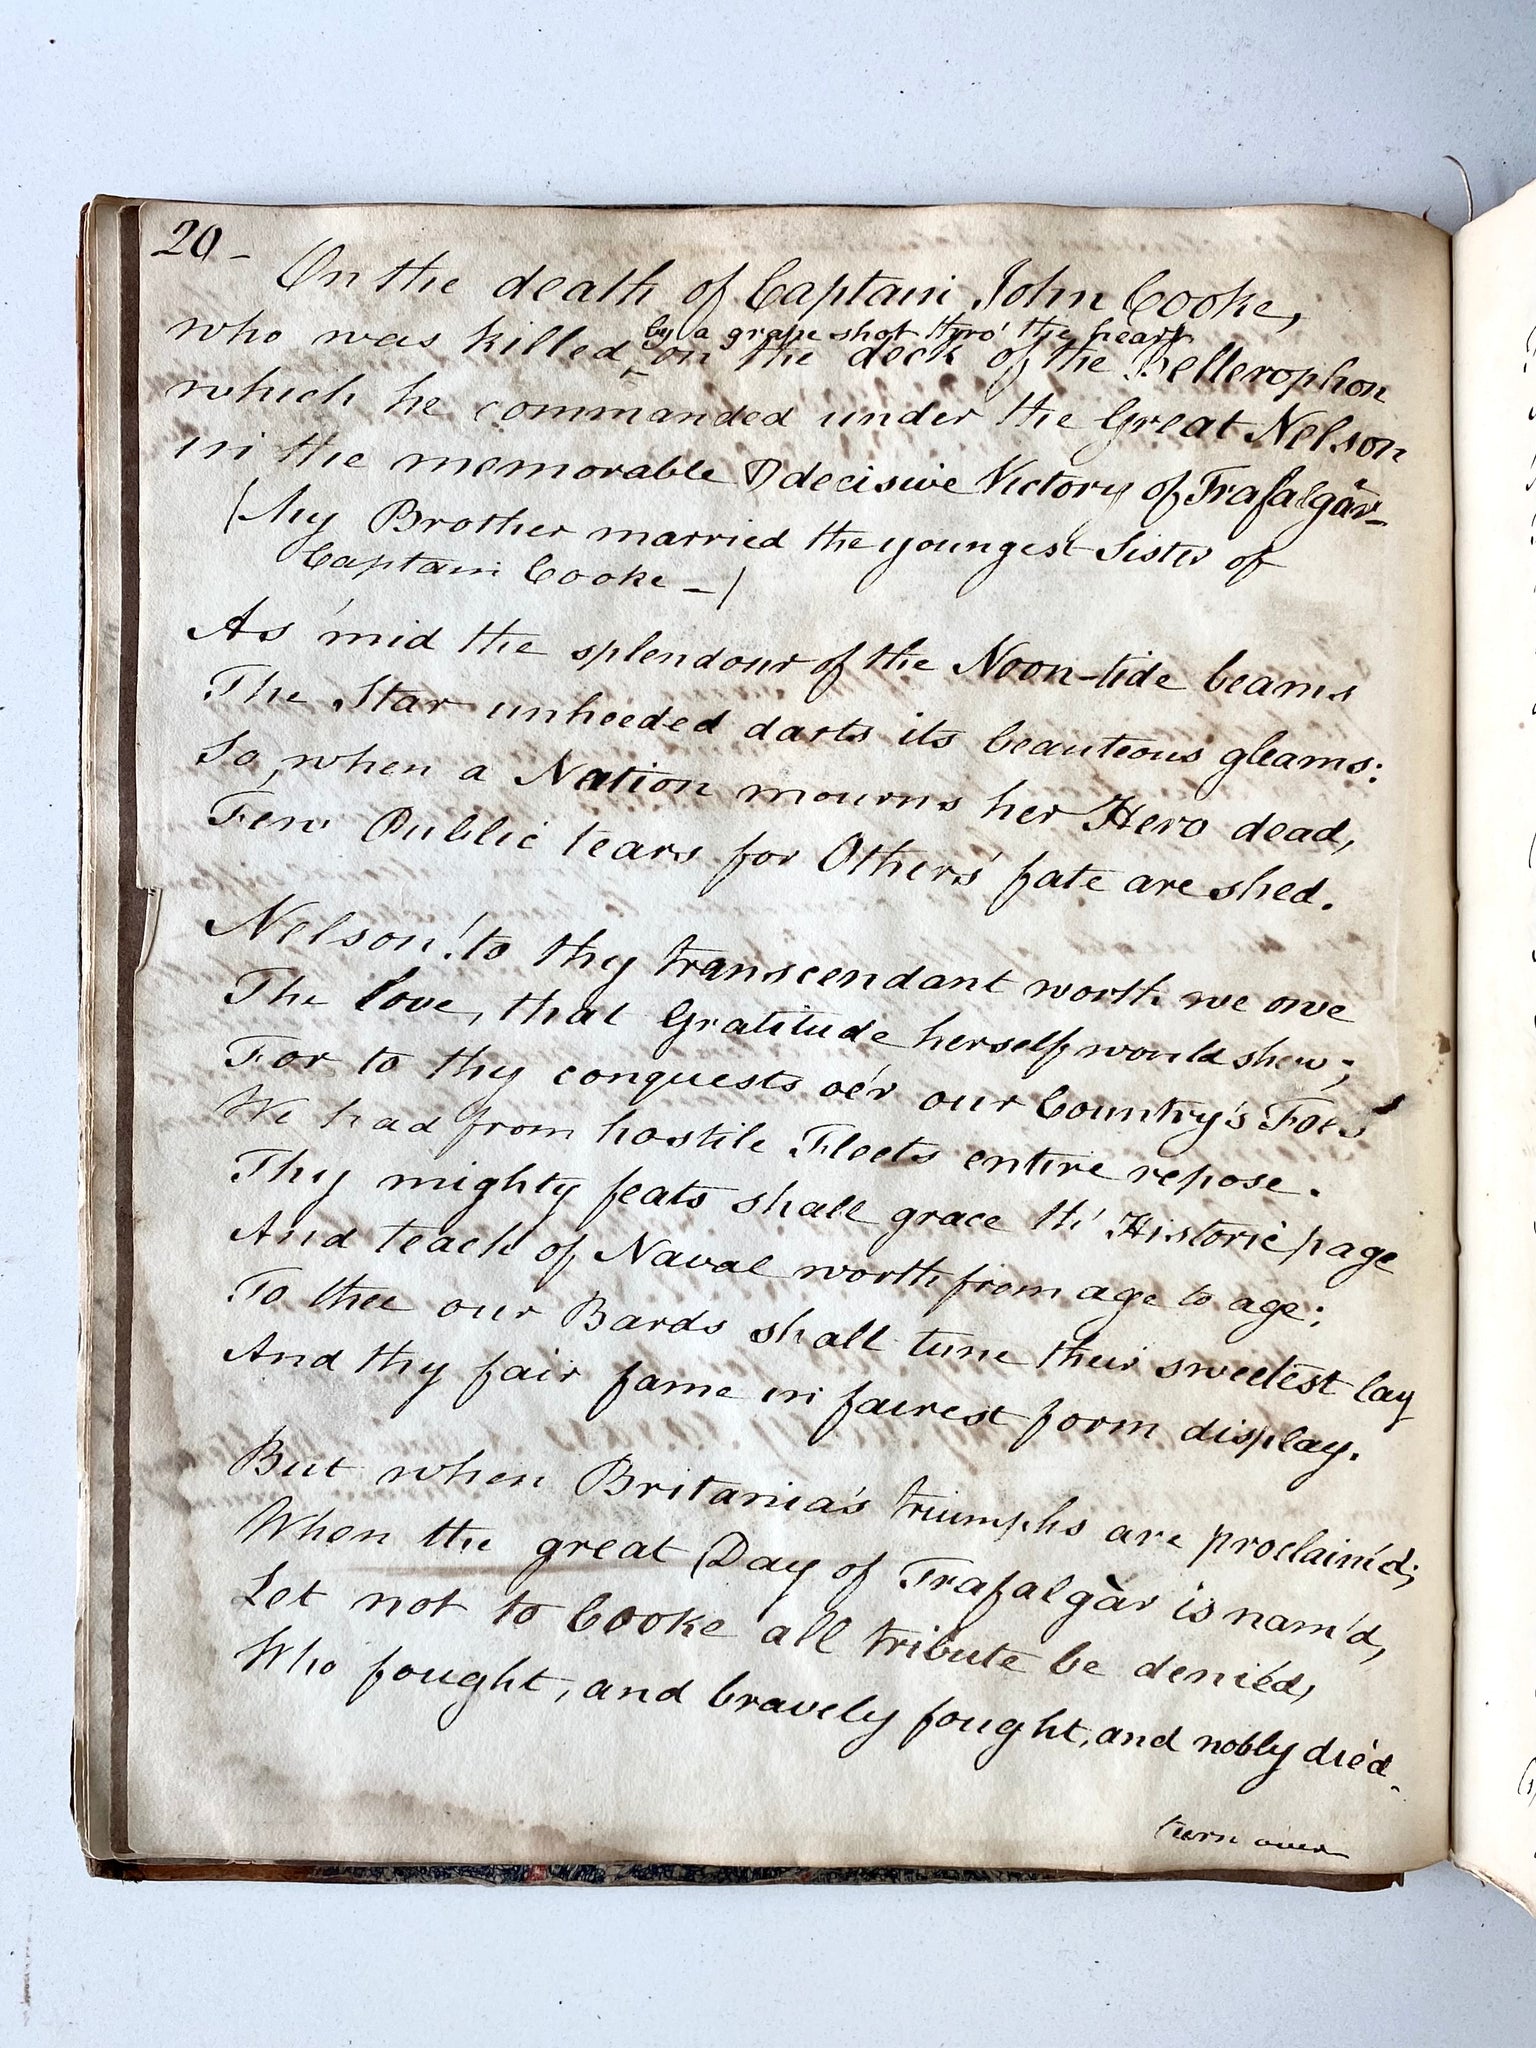 20-
On the death of Captain John Cooke,
by a grape shot thro' the heart
who was killed ^ on the deck of the Bellerophon
which he commanded under the Great Nelson
in the memorable & decisive Victory of Trafalgàr-
(My Brother married the youngest Sister of
Captain Cooke -)
As 'mid the splendour of the Noon-tide beams
The Star unheeded darts its beauteous gleams:
So, when a Nation mourns her Hero dead,
Few Public tears for Others' fate are shed.
Nelson! to thy transcendant worth we owe
The love, that Gratitude herself would shew;
For to thy conquests oe'r our Country's Foes
We had from hostile Fleets entire repose.
Thy mighty feats shall grace th' Historic page
And teach of Naval worth from age to age:
To thee our Bards shall tune their sweetest lay
And thy fair fame in fairest form display.
But when Britania's triumphs are proclaim'd;
When the great Day of Trafalgàr is nam'd,
Let not to Cooke all tribute be denied,
Who fought, and bravely fought, and nobly die'd-
turn over